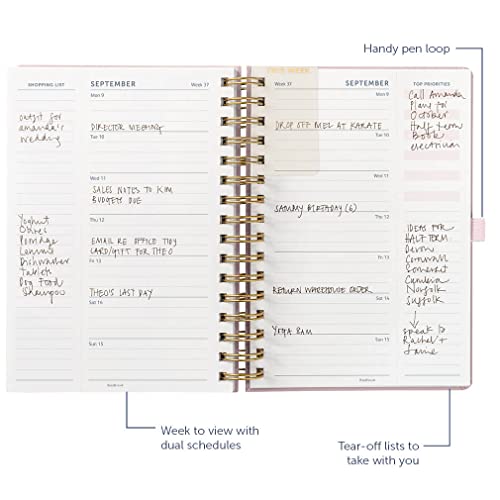 Handy pen loop
SHOPPING LIST
SEPTEMBER
Week 37
Mon 9
outfit for
amanda's
wedding
DIRECTOR MEETING
Tue 10
Wed 11
SALES NOTES TO KIM
BUDGETS DUE
Thu 12
Yoghurt
Olives
Porridge
Lemons
Dishwasher
Tablets
Dog Food
Shampoo
EMAIL RE OFFICE TIDY
CARD/GIFT FOR THEO
Fri 13
THEO'S LAST DAY
Sat 14
Sun 15
THIS WEEK
Week 37
SEPTEMBER
TOP PRIORITIES
Mon 9
DROP OFF MEL AT KARATE
Tue 10
Wed 11
SAMMY BIRTHDAY (6)
Thu 12
Fri 13
RETURN WAREHOUSE ORDER
Sat 14
YOGA 8AM
Sun 15
Call Amanda
Plans for
October
Half term
Book
electrician
IDEAS FOR
HALF TERM
Devon
Cornwall
Somerset
Cumbria
Norfolk
Suffolk
speak to
Rachel +
Jamie
Week to view with
dual schedules
Tear-off lists to
take with you